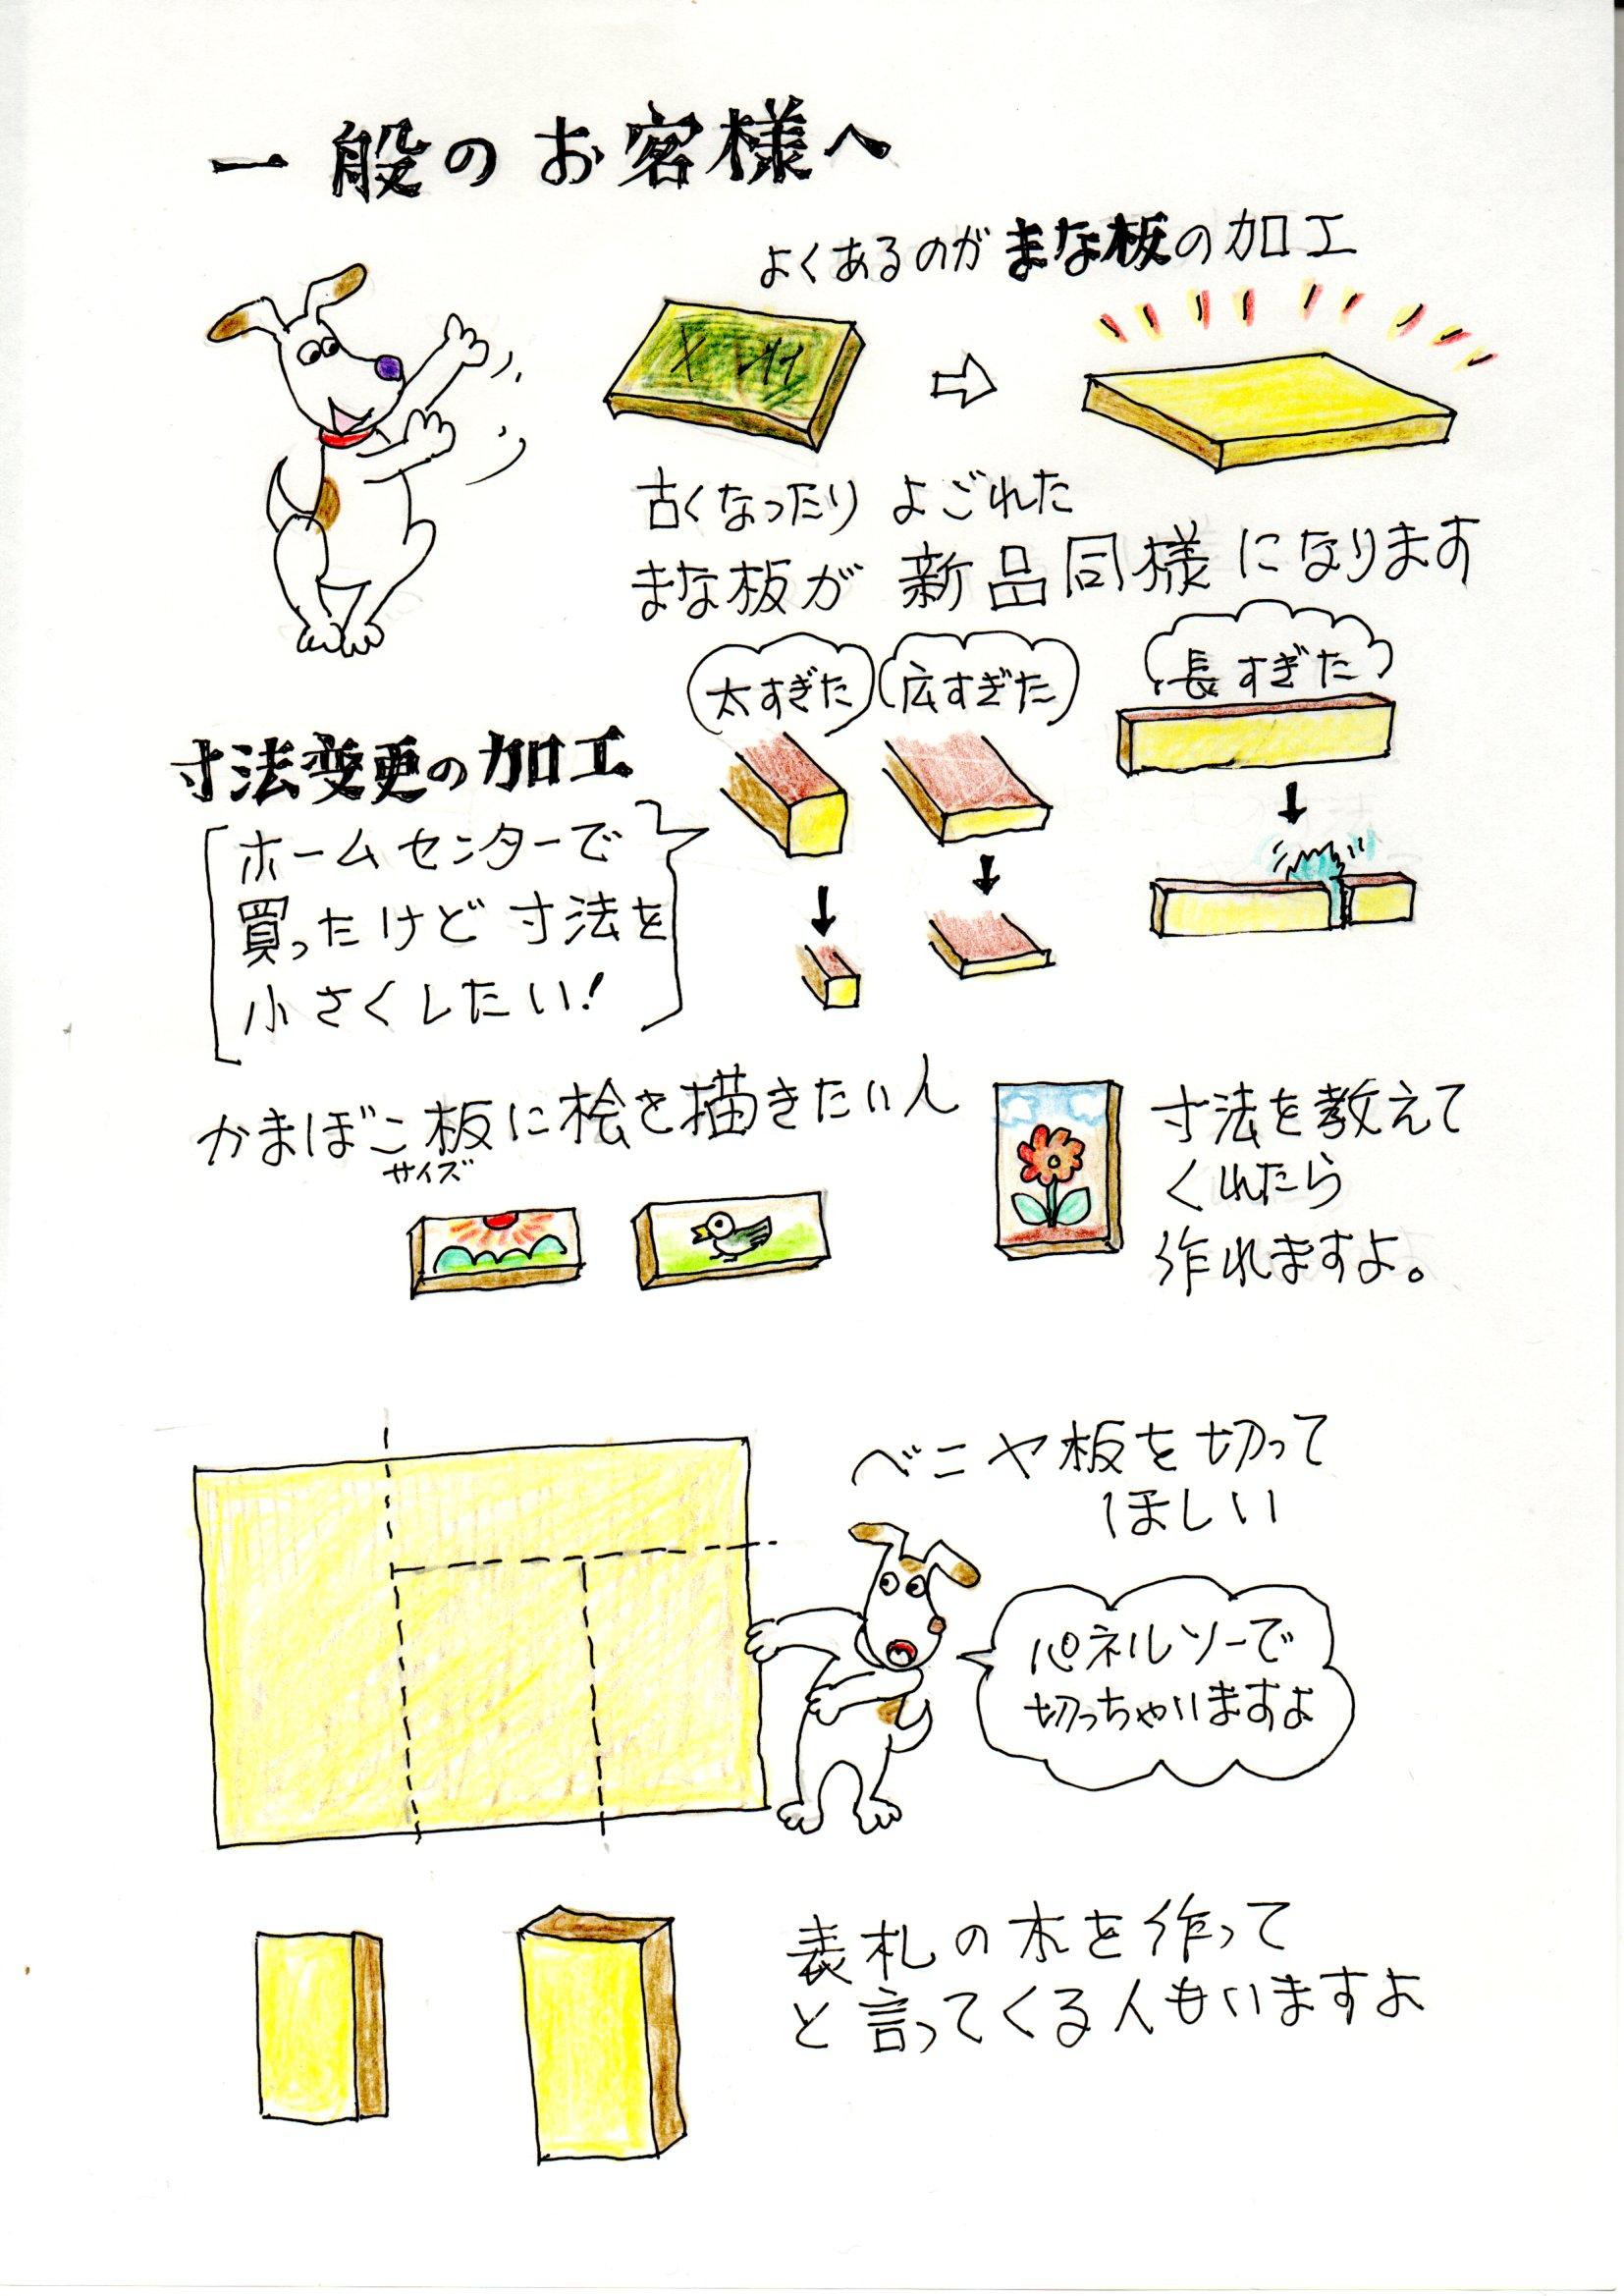 一般のお客様へ
よくあるのがまな板の加工
古くなったり よごれた
まな板が 新品同様になります
太すぎた
広すぎた
長すぎた
寸法変更の加工
ホームセンターで
買ったけど 寸法を
小さくしたい!
かまぼこ板に絵を描きたい人
サイズ
寸法を教えて
くれたら
作れますよ。
ベニヤ板を切って
ほしい
パネルソーで
切っちゃいますよ
表札の木を作って
と言ってくる人もいますよ